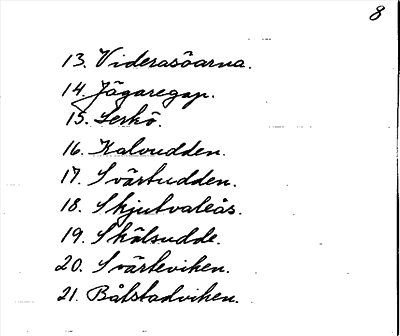 8
13. Viderasöarna.
14. Jägaregap.
15. Lerkö.
16. Kalvudden.
17. Svärtudden.
18. Skjutvaleås.
19. Skälsudde.
20. Svärteviken.
21. Båtstadviken.